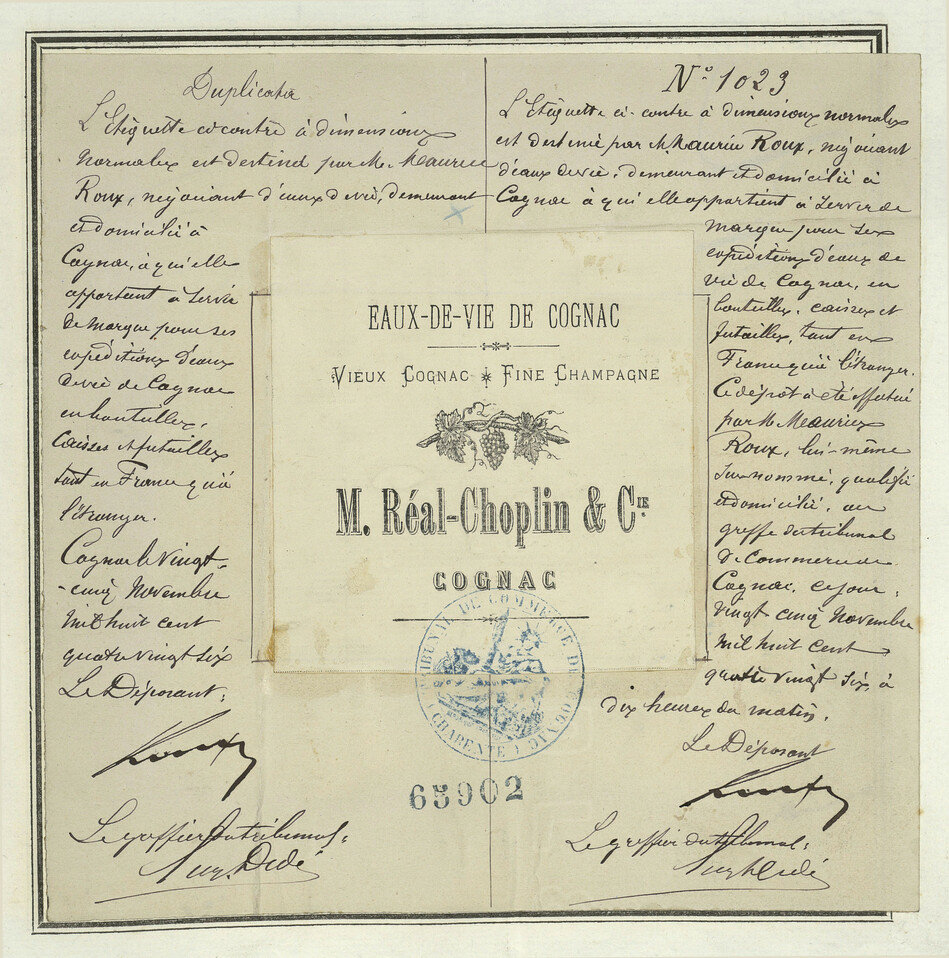 Duplicata
L'Etiquette ci-contre à dimensions
normales est destiné par M. Maurice
Roux, négociant d'eaux de vie, demeurant
et domicilié à
Cognac, à qui elle
appartient à servir
de marque pour ses
expéditions d'eaux
de vie de Cognac
en bouteilles,
caisses et futailles
tant en France qu'à
l'étranger.
Cognac le vingt-
-cinq Novembre
mil huit cent
quatre vingt six
Le Déposant,
Roux
Le greffier du tribunal:
N° 1023
L'Etiquette ci-contre à dimensions normales
est destiné par M. Maurice Roux, négociant
d'eaux de vie, demeurant et domicilié à
Cognac à qui elle appartient à servir de
marque pour ses
expéditions d'eaux de
vie de Cognac, en
bouteilles, caisses et
futailles, tant en
France qu'à l'étranger.
Ce dépôt a été effectué
par M. Maurice
Roux, lui-même
surnommé, qualifié
et domicilié, au
greffe du tribunal
de commerce de
Cognac, ce jour,
vingt cinq Novembre
mil huit cent
quatre vingt six, à
dix heures du matin.
Le Déposant
Roux
Le greffier du tribunal:
EAUX-DE-VIE DE COGNAC
VIEUX COGNAC FINE CHAMPAGNE
M. Réal-Choplin & CIE
COGNAC
TRIBUNAL DE COMMERCE DE COGNAC
(CHARENTE)
65902